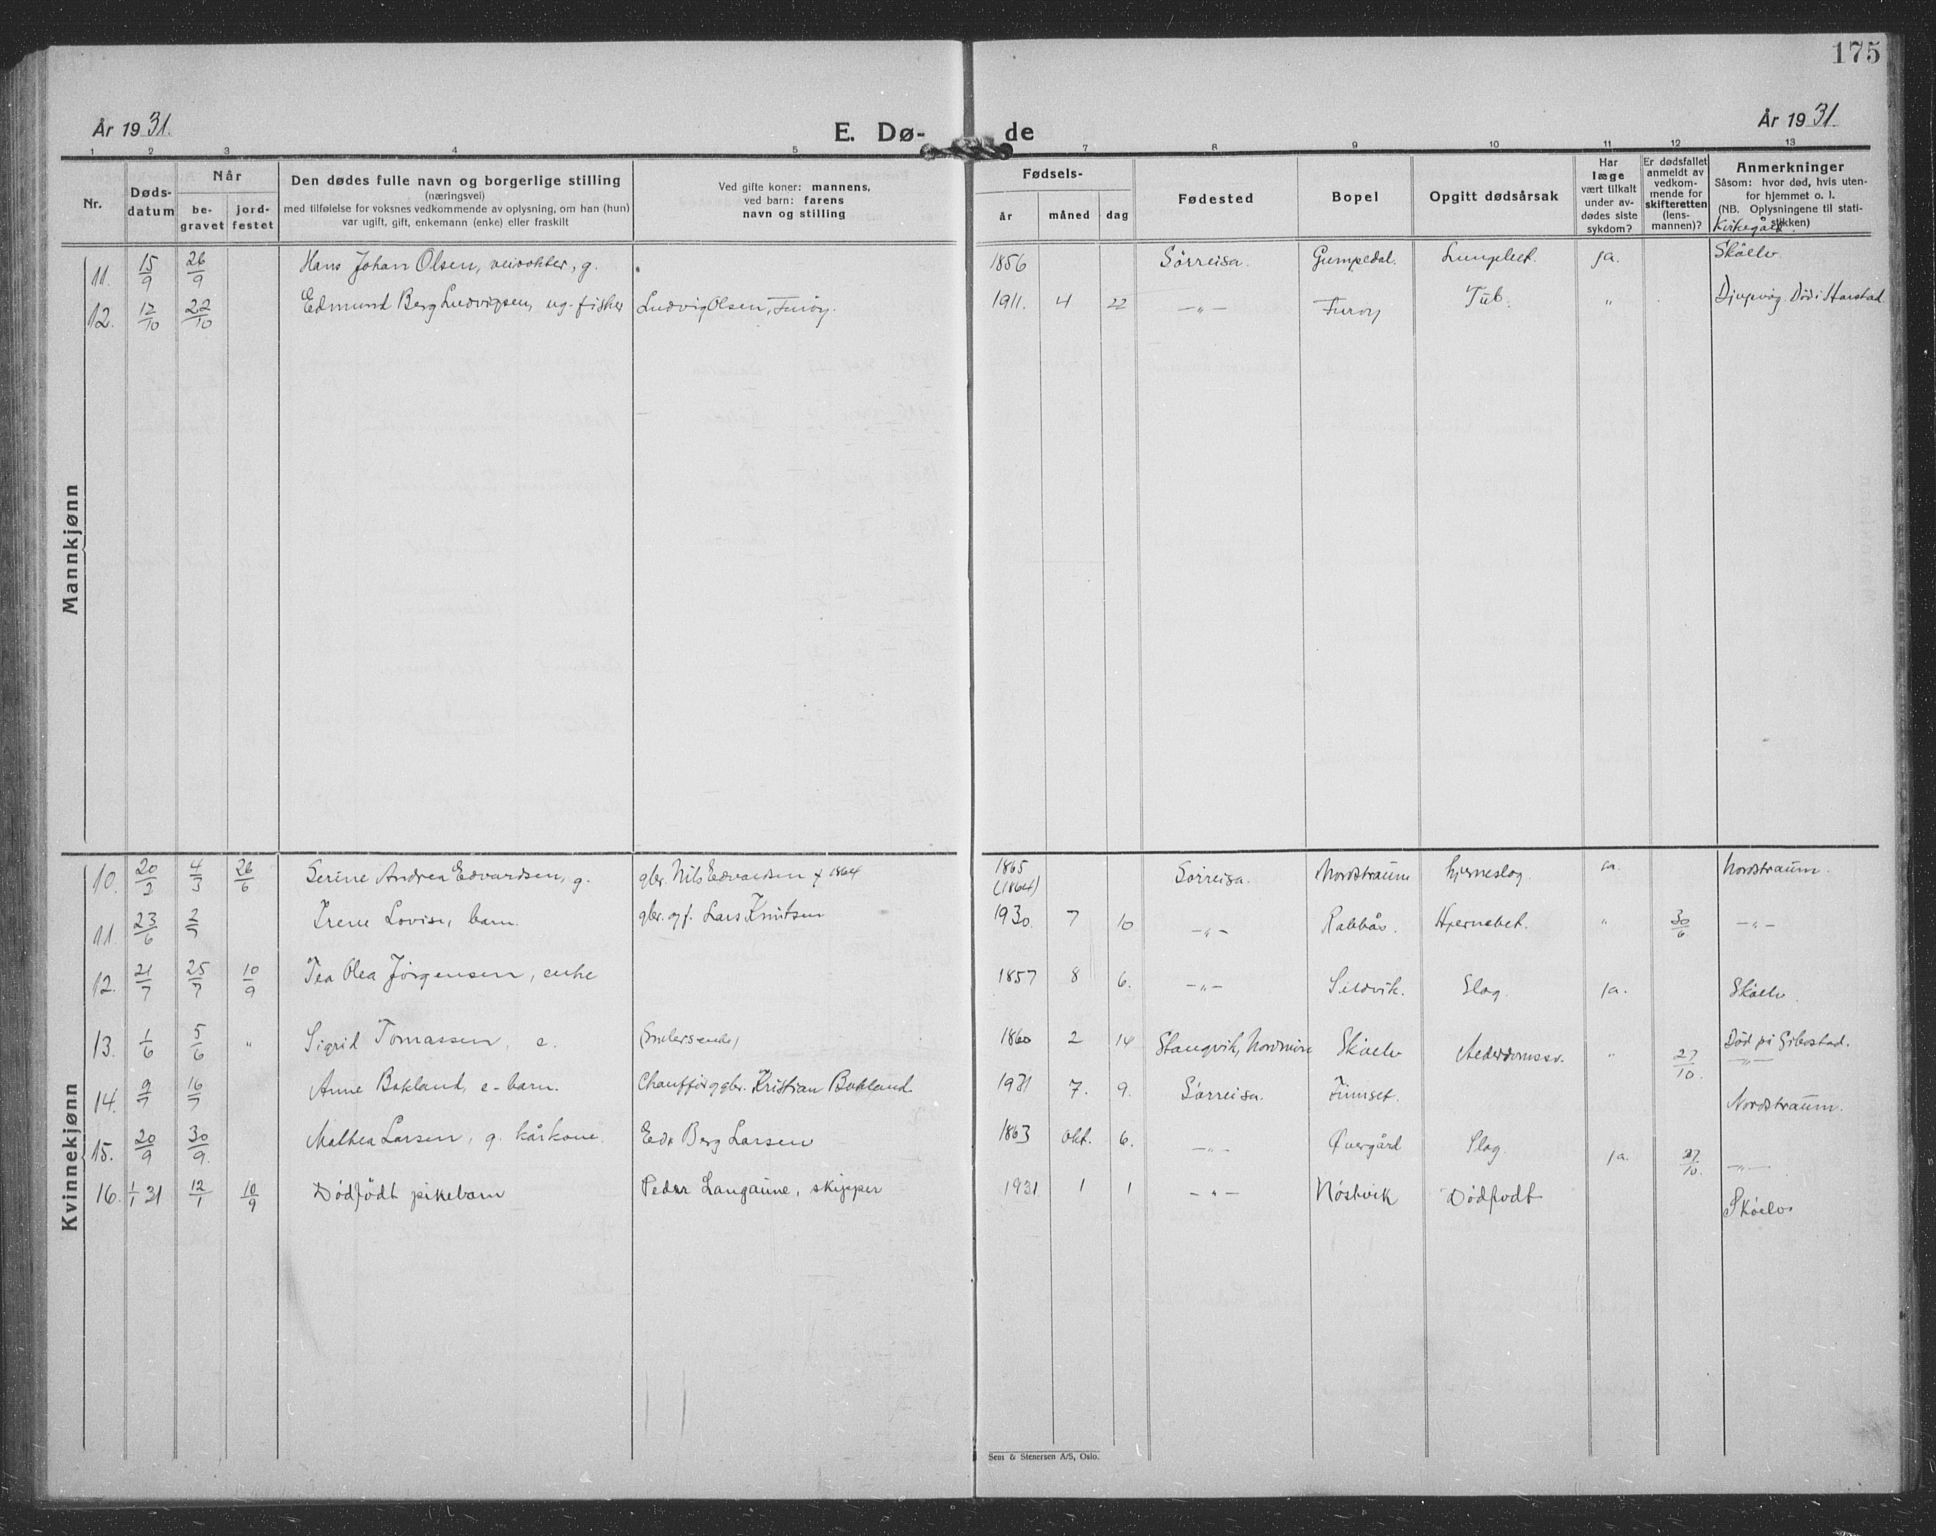 175
År 1931.
E. Dø- de
År 1931.
1 2 3 4 5 7 8 9 10 11 12 13
Nr.
Døds-datum
Når
be-gravet
jord-festet
Den dødes fulle navn og borgerlige stilling
(næringsvei)
med tilføielse for voksnes vedkommende av oplysning, om han (hun)
var ugift, gift, enkemann (enke) eller fraskilt
Ved gifte koner: mannens,
ved barn: farens
navn og stilling
Fødsels-
år måned dag
Fødested
Bopel
Opgitt dødsårsak
Har
læge
vært tilkalt
under av-
dødes siste
sykdom?
Er dødsfallet
anmeldt av
vedkom-
mende for
skifteretten
(lens-
mannen)?
Anmerkninger
Såsom: hvor død, hvis uten-
for hjemmet o. l.
(NB. Oplysningene til stati-
stikken)
Kirkegård
Mannkjønn
11. 15/9 26/9 Hans Johan Olsen, veivokter, g. 1856 Sørreisa. Gumpedal. Lungebet. ja. Sköelv
12. 12/10 22/10 Edmund Berg Ludvigsen, ug. fisker Ludvig Olsen, Furöy. 1911. 4 22 —"— Furöy Tub. " Djupvåg. Död i Harstad
Kvinnekjønn
10. 20/2 4/3 26/6 Serine Andrea Edvardsen, g. gbr. Nils Edvardsen f 1864 1865 (1864) Sörreisa. Nordstraum hjerneslag. ja. Nordstraum.
11. 23/6 2/7 Irene Lovise, barn. gbr. og f. Lars Knutsen 1930. 7 10 —"— Rabbås. Hjernebet. " 30/6 —"—
12. 21/7 25/7 10/9 Tea Olea Jörgensen, enke 1857 8 6. —"— Sildvik. Slag. ja. Sköelv.
13. 1/6 5/6 " Sigrid Tomassen, e. 1860 2 14 Stangvik, Nordmöre Sköelv Alderdomssv. " 27/10. Död på Gibostad. —"—
14. 9/7 16/7 Anne Bakland, e-barn. Chauffør, gbr. Kristian Bakland 1931 7. 9. Sørreisa. Finnset. Nordstraum.
15. 20/9 30/9. Malhea Larsen, g. kårkone. Edv Berg Larsen 1863 okt. 6. —"— Øvergård Slag. ja. 27/10. —"—
16. 1/1 31 12/1 10/9 Dödfödt pikebarn Peder Langaune, skipper 1931 1 1 —"— Nöstvik Dödfödt Sköelv
Sem & Stenersen A/S, Oslo.